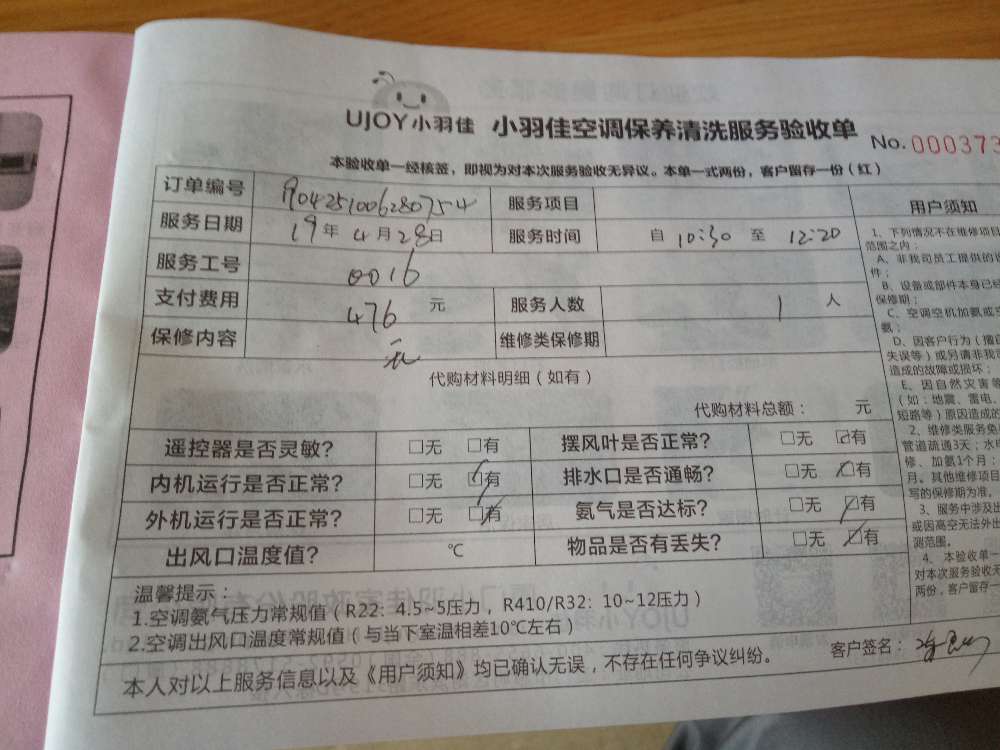 UJOY小羽佳 小羽佳空调保养清洗服务验收单 No. 000373
本验收单一经核签，即视为对本次服务验收无异议。本单一式两份，客户留存一份（红）
订单编号 服务项目
服务日期 19年 4月28日 服务时间 自 10:30 至 12:20
服务工号 0016
支付费用 476 元 服务人数 1 人
保修内容 无 维修类保修期
代购材料明细（如有）
代购材料总额： 元
遥控器是否灵敏？ □无 □有 摆风叶是否正常？ □无 ☑有
内机运行是否正常？ □无 ☑有 排水口是否通畅？ □无 ☑有
外机运行是否正常？ □无 ☑有 氨气是否达标？ □无 ☑有
出风口温度值？ ℃ 物品是否有丢失？ □无 ☑有
温馨提示：
1.空调氨气压力常规值（R22：4.5~5压力，R410/R32：10~12压力）
2.空调出风口温度常规值（与当下室温相差10℃左右）
本人对以上服务信息以及《用户须知》均已确认无误，不存在任何争议纠纷。
客户签名：
用户须知
1、下列情况不在维修项目
范围之内：
A、非我司员工提供的
件；
B、设备或部件本身已经
保修期；
C、空调空机加氨或
氨；
D、因客户行为（撞
失误等）或另请非我
造成的故障或损坏；
E、因自然灾害等
（如：地震、雷电、
短路等）原因造成的
2、维修类服务免
管道疏通3天；水
修、加氨1个月；
月。其他维修项目
写的保修期为准。
3、服务中涉及
或因高空无法外出
测范围。
4、本验收单一
对本次服务验收无
两份，客户留存一